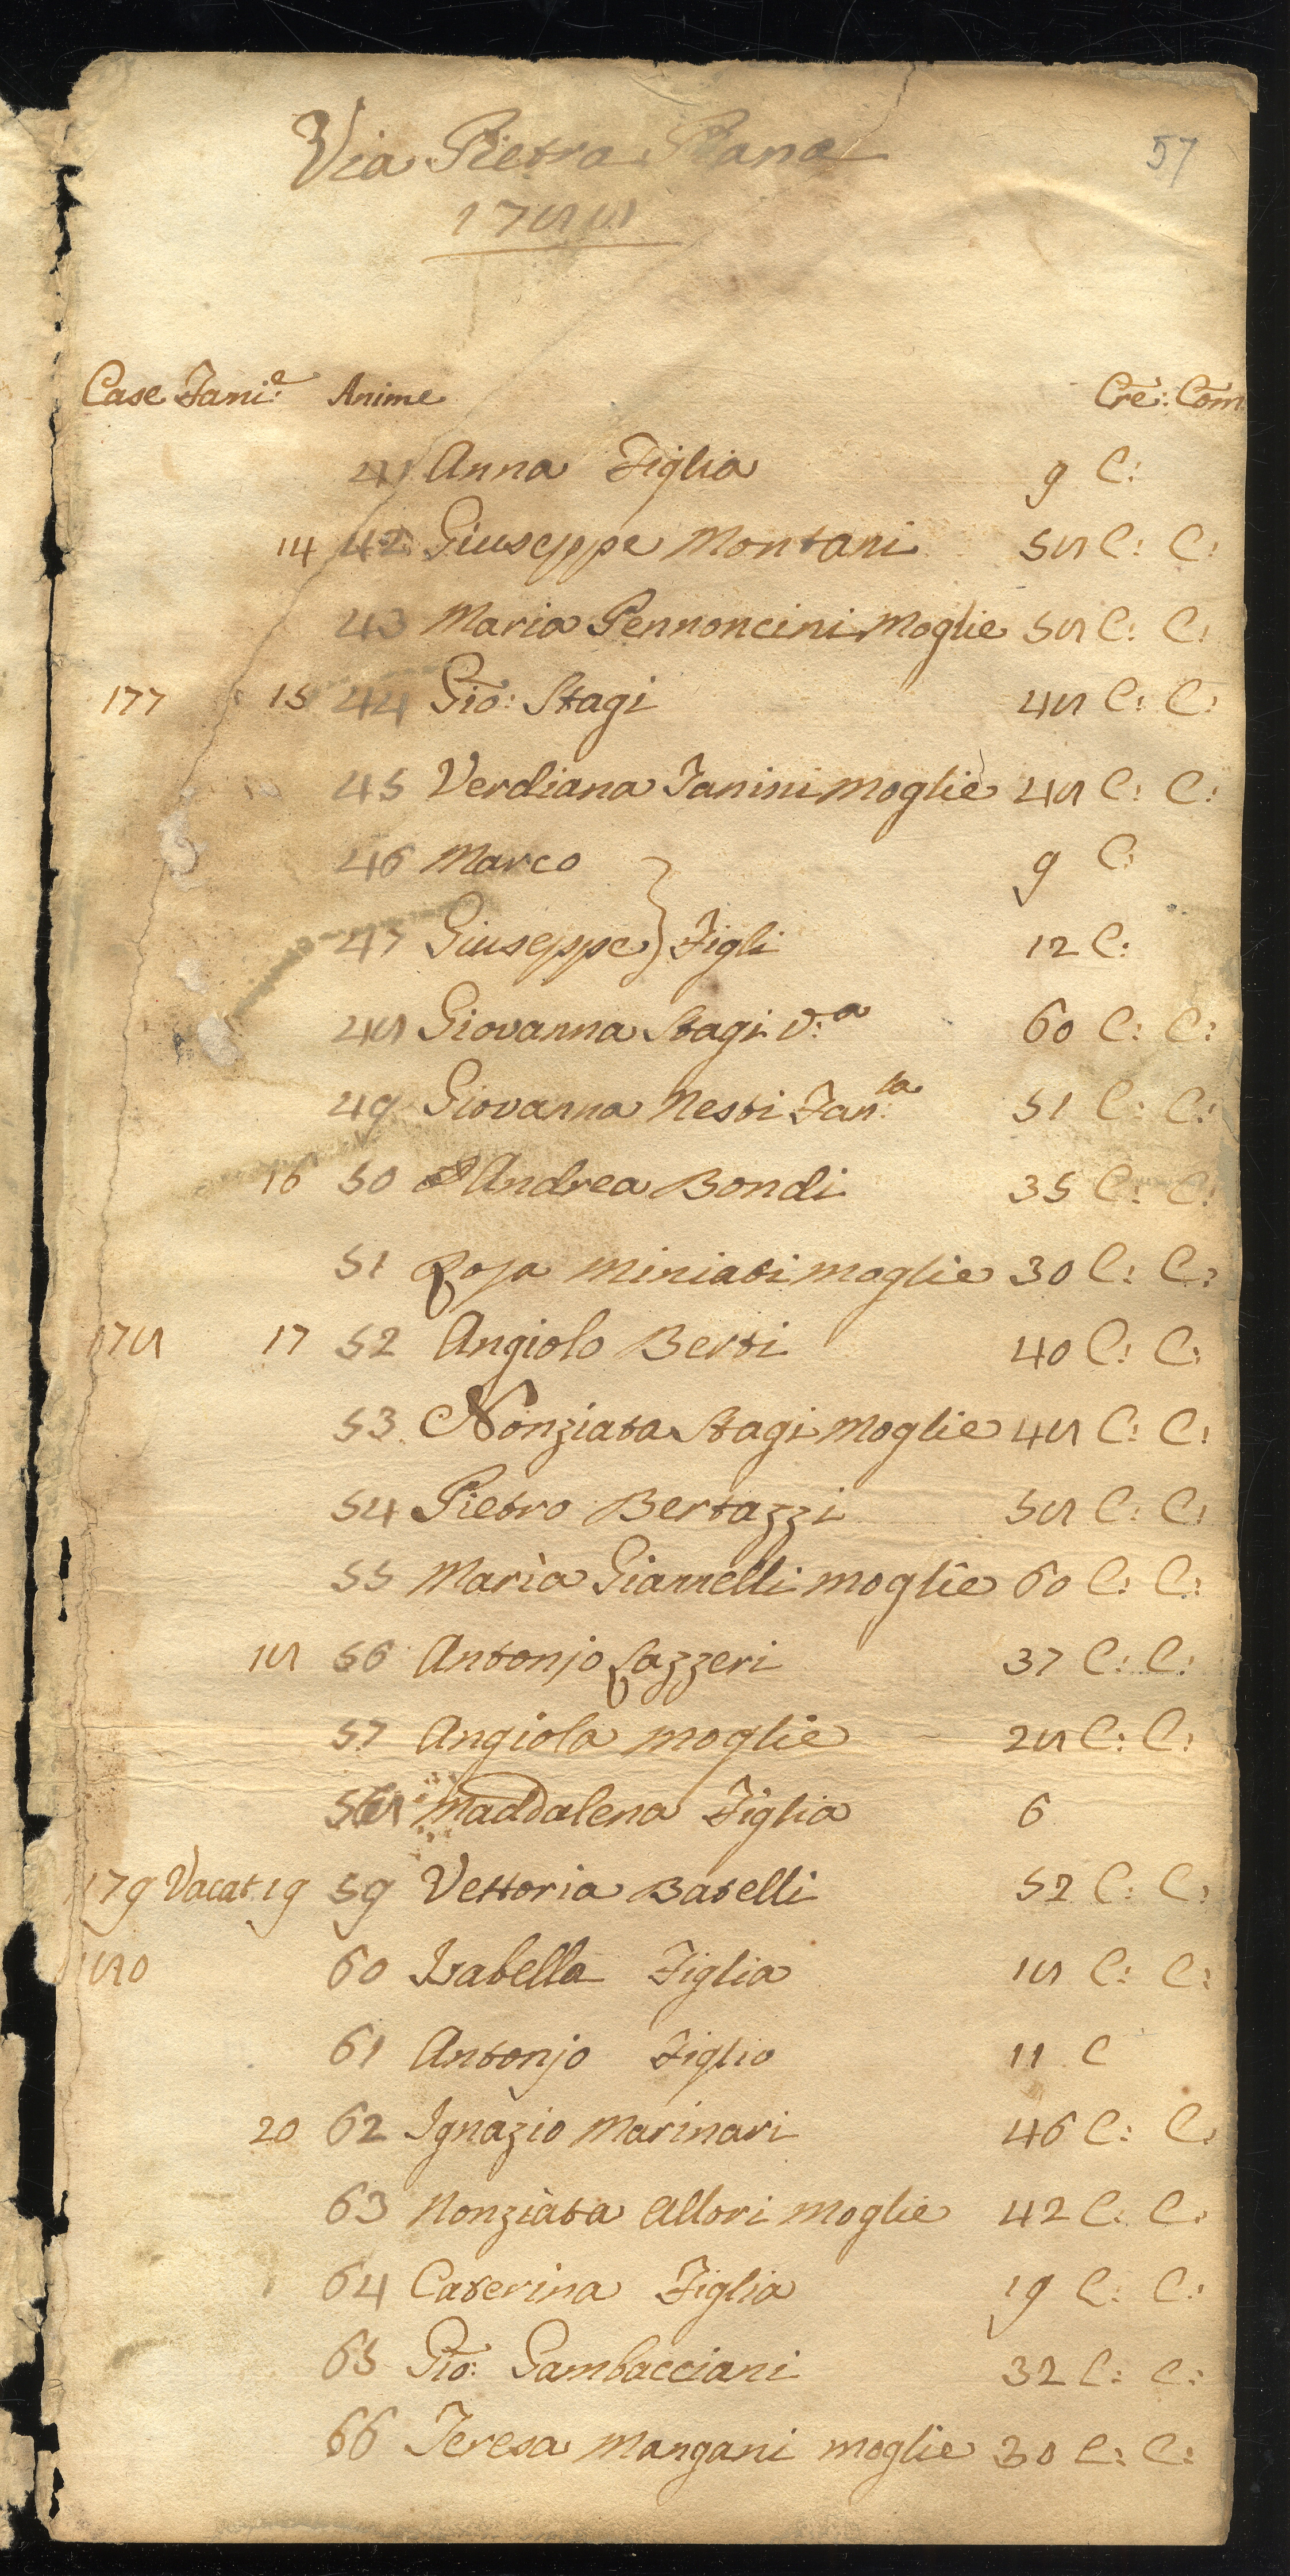 Via Pietra Piana
57
1788
Case Fami:e Anime Cre: Com
41 Anna Figlia 9 C:
14 42 Giuseppe Montani 58 C: C:
43 Maria Pennoncini Moglie 58 C: C:
177 15 44 Gio: Stagi 48 C: C:
45 Verdiana Fanini moglie 48 C: C:
46 Marco 9 C:
47 Giuseppe } Figli 12 C:
48 Giovanna Stagi v:a 60 C: C:
49 Giovanna Nesti Fan:ta 51 C: C:
16 50 Andrea Bondi 35 C: C:
51 Rosa Miniati moglie 30 C: C:
178 17 52 Angiolo Berti 40 C: C:
53 Nonziata Stagi Moglie 48 C: C:
54 Pietro Bertazzi 58 C: C:
55 Maria Giannelli moglie 60 C: C:
18 56 Antonjo Lazzeri 37 C: C:
57 Angiola moglie 28 C: C:
58 Maddalena Figlia 6
179 Vacat 19 59 Vettoria Batelli 52 C: C:
180 60 Isabella Figlia 18 C: C:
61 Antonjo Figlio 11 C
20 62 Ignazio Marinari 46 C: C:
63 Nonziata Allori Moglie 42 C: C:
64 Caterina Figlia 19 C: C:
65 Gio: Gambacciani 32 C: C:
66 Teresa Mangani moglie 30 C: C: